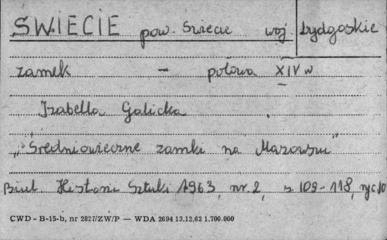 ŚWIECIE pow. Świecie woj. bydgoskie
zamek – połowa XIV w
Izabella Galicka
"Średniowieczne zamki na Mazowszu"
Biul. Historii Sztuki 1963, nr. 2, s 109-118, ryc 10
CWD - B-15-b, nr 2827/ZW/P — WDA 2694 13.12.62 1.700.000